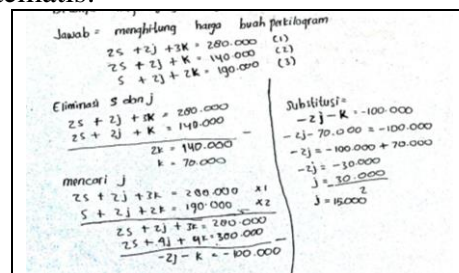 Jawab = menghitung harga buah perkilogram
2s + 2j + 3k = 280.000 (1)
2s + 2j + k = 140.000 (2)
s + 2j + 2k = 190.000 (3)
Eliminasi s dan j
2s + 2j + 3k = 280.000
2s + 2j + k = 140.000
2k = 140.000
k = 70.000
mencari j
2s + 2j + 3k = 280.000 x1
s + 2j + 2k = 190.000 x2
2s + 2j + 3k = 280.000
2s + 4j + 4k = 380.000
-2j - k = -100.000
Substitusi =
-2j - k = -100.000
-2j - 70.000 = -100.000
-2j = -100.000 + 70.000
-2j = -30.000
j = 30.000
2
j = 15.000